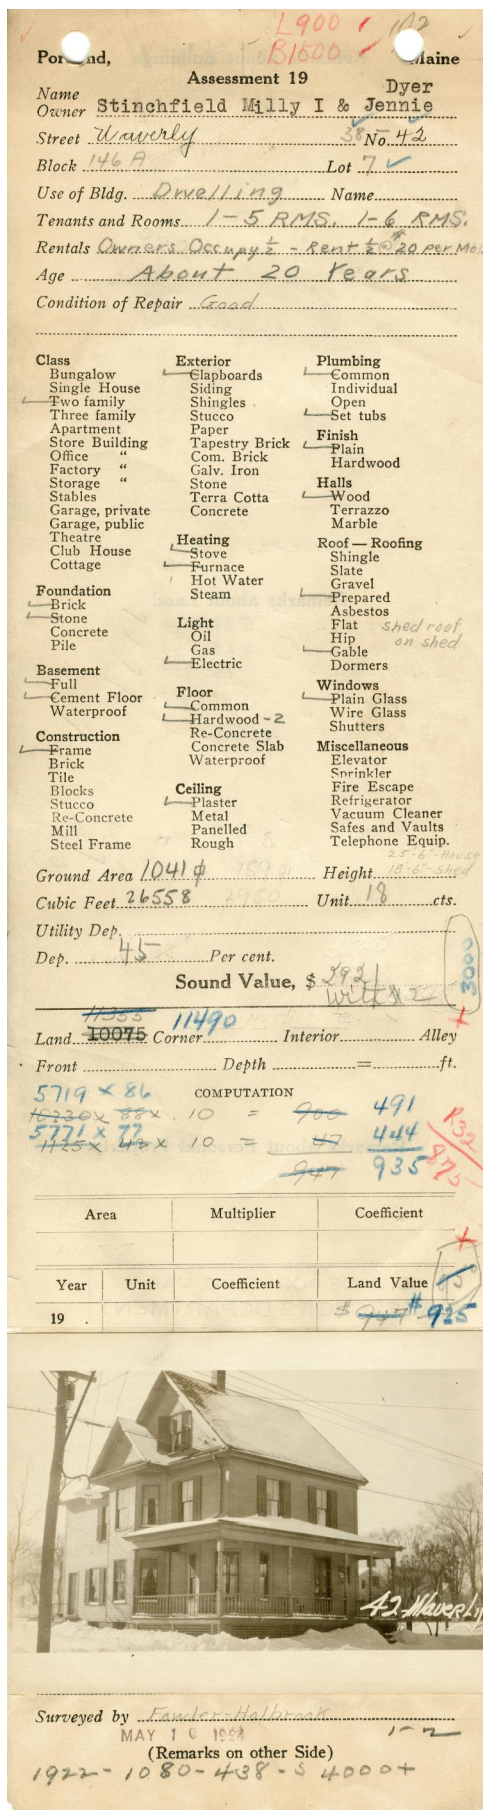 L900 102
B1500
Portland, Maine
Assessment 19
Name Dyer
Owner Stinchfield Milly I & Jennie
Street Waverly 38- No. 42
Block 146 A Lot 7
Use of Bldg. Dwelling Name
Tenants and Rooms 1-5 RMS. 1-6 RMS.
Rentals Owners Occupy ½ - Rent ½ @ $20 per Mo.
Age About 20 Years
Condition of Repair Good
Class
Bungalow
Single House
Two family
Three family
Apartment
Store Building
Office "
Factory "
Storage "
Stables
Garage, private
Garage, public
Theatre
Club House
Cottage
Foundation
Brick
Stone
Concrete
Pile
Basement
Full
Cement Floor
Waterproof
Construction
Frame
Brick
Tile
Blocks
Stucco
Re-Concrete
Mill
Steel Frame
Exterior
Clapboards
Siding
Shingles
Stucco
Paper
Tapestry Brick
Com. Brick
Galv. Iron
Stone
Terra Cotta
Concrete
Heating
Stove
Furnace
Hot Water
Steam
Light
Oil
Gas
Electric
Floor
Common
Hardwood -2
Re-Concrete
Concrete Slab
Waterproof
Ceiling
Plaster
Metal
Panelled
Rough
Plumbing
Common
Individual
Open
Set tubs
Finish
Plain
Hardwood
Halls
Wood
Terrazzo
Marble
Roof — Roofing
Shingle
Slate
Gravel
Prepared
Asbestos
Flat shed roof
Hip on shed
Gable
Dormers
Windows
Plain Glass
Wire Glass
Shutters
Miscellaneous
Elevator
Sprinkler
Fire Escape
Refrigerator
Vacuum Cleaner
Safes and Vaults
Telephone Equip.
25'-6"-House
Ground Area 1041 Height 18'-6"-Shed
Cubic Feet 26558 Unit 18 cts.
Utility Dep.
Dep. 45 Per cent.
3000
Sound Value, $ 2921
11355 11490
Land 10075 Corner Interior Alley
Front Depth = ft.
5719 x 86 COMPUTATION
10230 x 88 x .10 = 900 491
5771 x 77
1125 x 42 x .10 = 47 444
947 935
R32
875
Area Multiplier Coefficient
Year Unit Coefficient Land Value
19 . $ 947 $ 925
42-Waverly
Surveyed by Fowler-Holbrook
MAY 16 1924 1-2
(Remarks on other Side)
1922 - 1080 - 438 - $ 4000+